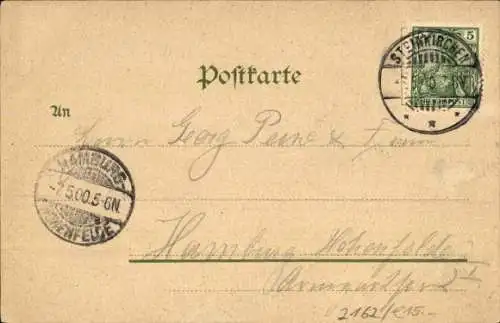 5
STEINKIRCHEN
Postkarte
An
Herrn Georg Peine &
HAMBURG-
-7.5.00.5-6N.
HOHENFELDE.
Hamburg Hohenfelde
2162/€15.-